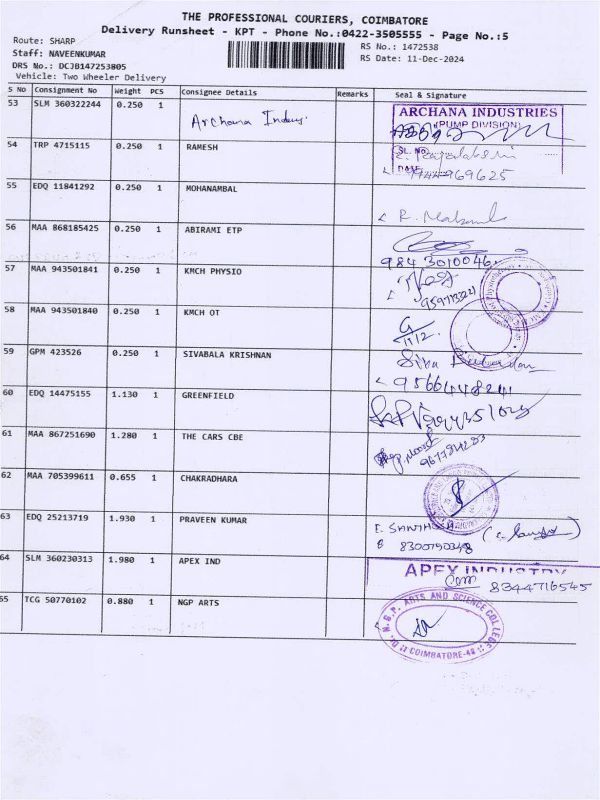 THE PROFESSIONAL COURIERS, COIMBATORE
Delivery Runsheet - KPT - Phone No.:0422-3505555 - Page No.:5
Route: SHARP
RS No.: 1472538
Staff: NAVEENKUMAR
RS Date: 11-Dec-2024
DRS No.: DCJB147253805
Vehicle: Two Wheeler Delivery
S No Consignment No Weight PCS Consignee Details Remarks Seal & Signature
53 SLM 360322244 0.250 1 Archana Indus. ARCHANA INDUSTRIES
(PUMP DIVISION)
54 TRP 4715115 0.250 1 RAMESH SL. No.
DATE 969625
55 EDQ 11841292 0.250 1 MOHANAMBAL R.
56 MAA 868185425 0.250 1 ABIRAMI ETP
984 3010046
57 MAA 943501841 0.250 1 KMCH PHYSIO
58 MAA 943501840 0.250 1 KMCH OT
11/12.
59 GPM 423526 0.250 1 SIVABALA KRISHNAN Siva
9566448241
60 EDQ 14475155 1.130 1 GREENFIELD
61 MAA 867251690 1.280 1 THE CARS CBE
62 MAA 705399611 0.655 1 CHAKRADHARA
63 EDQ 25213719 1.930 1 PRAVEEN KUMAR
64 SLM 360230313 1.980 1 APEX IND APEX INDUSTRY
8344716545
65 TCG 50770102 0.880 1 NGP ARTS Dr. N.G.P. ARTS AND SCIENCE COLLEGE
COIMBATORE-48